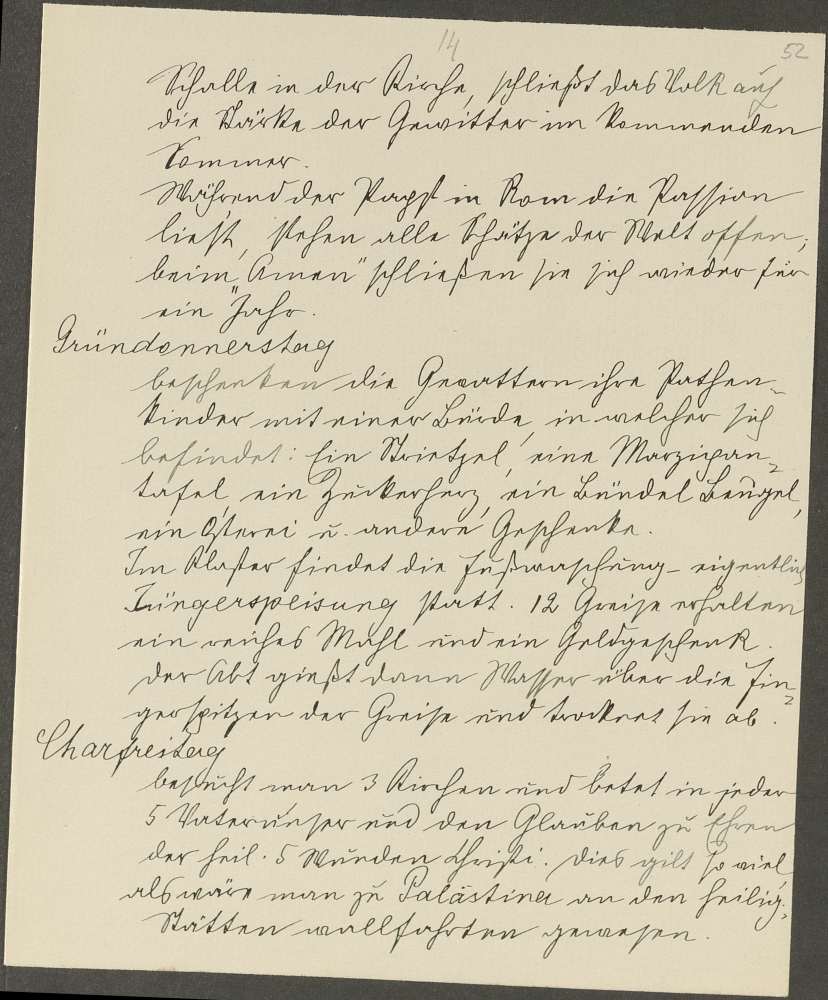 14
52
Schalle in der Kirche, schließt das Volk auf
die Stärke der Gewitter im kommenden
Sommer.
Während der Papst in Rom die Passion
liest, stehen alle Schätze der Welt offen;
beim „Amen" schließen sie sich wieder für
ein Jahr.
Gründonnerstag
beschenken die Gevattern ihre Pathen-
kinder mit einer Bürde, in welcher sich
befindet: Ein Strietzel, eine Marzipan-
tafel, ein Zuckerherz, ein Bündel Beugel,
ein Osterei u. andere Geschenke.
Im Kloster findet die Fußwaschung – eigentlich
Jüngerspeisung statt. 12 Greise erhalten
ein reiches Mahl und ein Geldgeschenk.
Der Abt gießt dann Wasser über die Fin-
gerspitzen der Greise und trocknet sie ab.
Charfreitag
besucht man 3 Kirchen und betet in jeder
5 Vaterunser und den Glauben zu Ehren
der heil. 5 Wunden Christi. Dies gilt so viel,
als wäre man zu Palästina an den heilig.
Stätten wallfahrten gewesen.